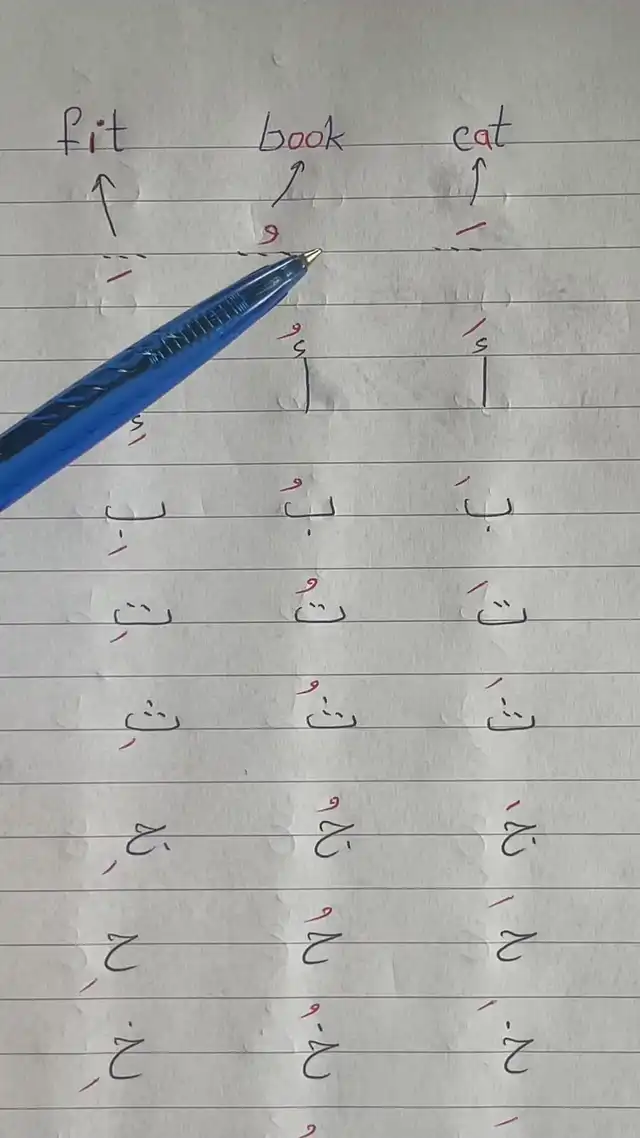 fit book cat
ـَ ـُ ـِ
أَ أُ إِ
بَ بُ بِ
تَ تُ تِ
ثَ ثُ ثِ
جَ جُ جِ
حَ حُ حِ
خَ خُ خِ